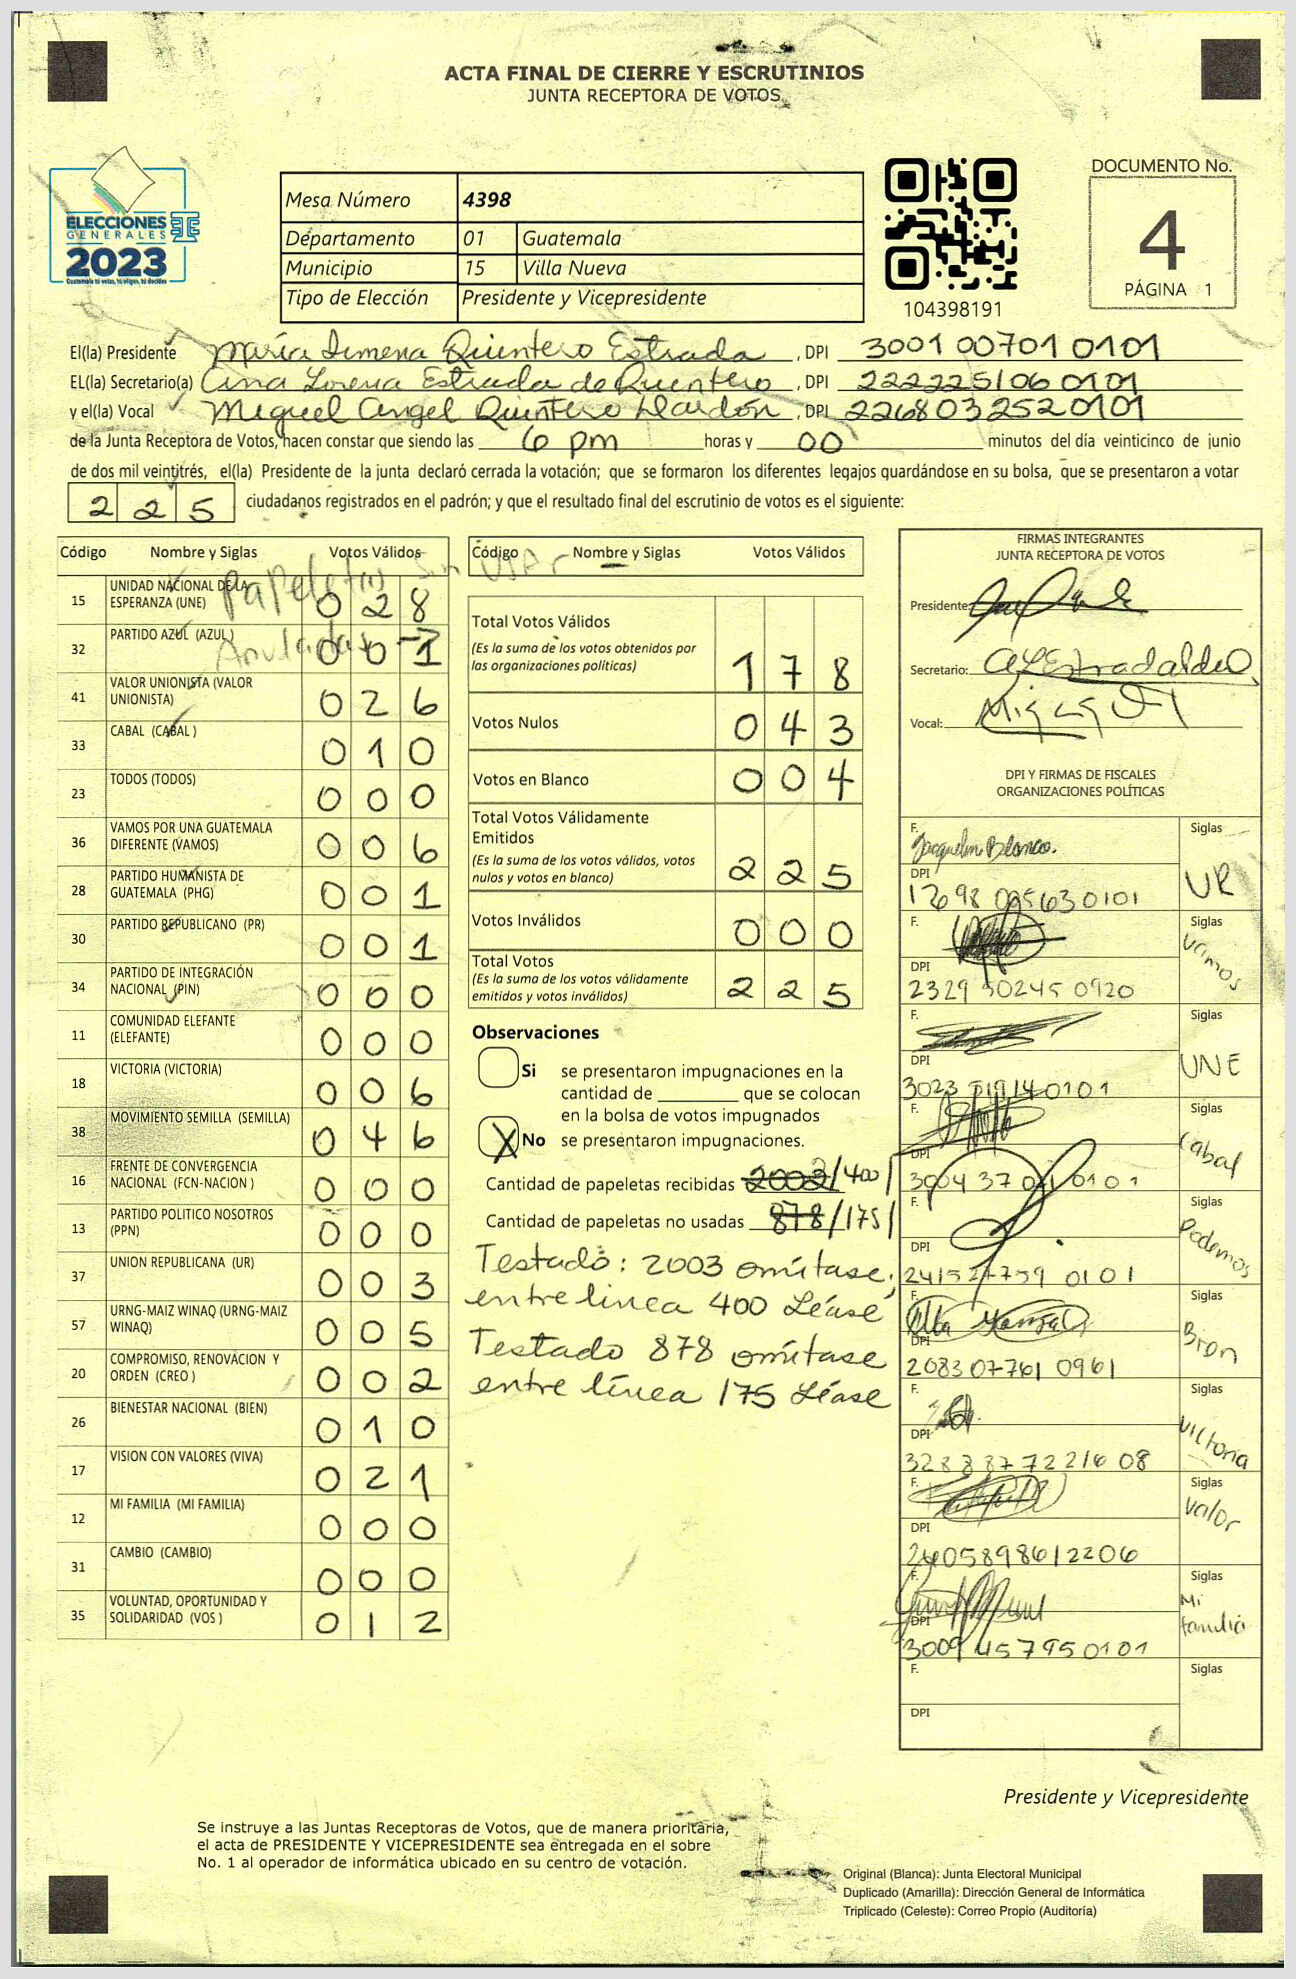 ACTA FINAL DE CIERRE Y ESCRUTINIOS
JUNTA RECEPTORA DE VOTOS
ELECCIONES
GENERALES
2023
Guatemala tú votas, tú eliges, tú decides
Mesa Número 4398
Departamento 01 Guatemala
Municipio 15 Villa Nueva
Tipo de Elección Presidente y Vicepresidente
104398191
DOCUMENTO No.
4
PÁGINA 1
El(la) Presidente María Jimena Quintero Estrada, DPI 3001 00701 0101
EL(la) Secretario(a) Ana Lorena Estrada de Quintero, DPI 222225106 0101
y el(la) Vocal Miguel Angel Quintero Dardón, DPI 2268032520101
de la Junta Receptora de Votos, hacen constar que siendo las 6 pm horas y 00 minutos del día veinticinco de junio
de dos mil veintitrés, el(la) Presidente de la junta declaró cerrada la votación; que se formaron los diferentes legajos guardándose en su bolsa, que se presentaron a votar
2 2 5 ciudadanos registrados en el padrón; y que el resultado final del escrutinio de votos es el siguiente:
Código Nombre y Siglas Votos Válidos
Papeletas sin usar
Anuladas
15 UNIDAD NACIONAL DE LA ESPERANZA (UNE) 0 2 8
32 PARTIDO AZUL (AZUL) 0 0 1
41 VALOR UNIONISTA (VALOR UNIONISTA) 0 2 6
33 CABAL (CABAL ) 0 1 0
23 TODOS (TODOS) 0 0 0
36 VAMOS POR UNA GUATEMALA DIFERENTE (VAMOS) 0 0 6
28 PARTIDO HUMANISTA DE GUATEMALA (PHG) 0 0 1
30 PARTIDO REPUBLICANO (PR) 0 0 1
34 PARTIDO DE INTEGRACIÓN NACIONAL (PIN) 0 0 0
11 COMUNIDAD ELEFANTE (ELEFANTE) 0 0 0
18 VICTORIA (VICTORIA) 0 0 6
38 MOVIMIENTO SEMILLA (SEMILLA) 0 4 6
16 FRENTE DE CONVERGENCIA NACIONAL (FCN-NACION ) 0 0 0
13 PARTIDO POLITICO NOSOTROS (PPN) 0 0 0
37 UNION REPUBLICANA (UR) 0 0 3
57 URNG-MAIZ WINAQ (URNG-MAIZ WINAQ) 0 0 5
20 COMPROMISO, RENOVACION Y ORDEN (CREO ) 0 0 2
26 BIENESTAR NACIONAL (BIEN) 0 1 0
17 VISION CON VALORES (VIVA) 0 2 1
12 MI FAMILIA (MI FAMILIA) 0 0 0
31 CAMBIO (CAMBIO) 0 0 0
35 VOLUNTAD, OPORTUNIDAD Y SOLIDARIDAD (VOS ) 0 1 2
Código Nombre y Siglas Votos Válidos
Total Votos Válidos
(Es la suma de los votos obtenidos por
las organizaciones políticas) 1 7 8
Votos Nulos 0 4 3
Votos en Blanco 0 0 4
Total Votos Válidamente
Emitidos
(Es la suma de los votos válidos, votos
nulos y votos en blanco) 2 2 5
Votos Inválidos 0 0 0
Total Votos
(Es la suma de los votos válidamente
emitidos y votos inválidos) 2 2 5
Observaciones
Si se presentaron impugnaciones en la
cantidad de ________ que se colocan
en la bolsa de votos impugnados
X No se presentaron impugnaciones.
Cantidad de papeletas recibidas 2003/400/
Cantidad de papeletas no usadas 878/175/
Testado: 2003 omítase,
entre linea 400 Léase
Testado 878 omítase
entre línea 175 Léase
FIRMAS INTEGRANTES
JUNTA RECEPTORA DE VOTOS
Presidente:
Secretario:
Vocal:
DPI Y FIRMAS DE FISCALES
ORGANIZACIONES POLÍTICAS
F. Jacquelin Blanco. Siglas
DPI UR
F. Siglas
DPI Vamos
2329 50245 0920
F. Siglas
DPI UNE
F. Siglas
DPI Cabal
F. Siglas
DPI Podemos
F. Siglas
DPI Bien
2083 07761 0961
F. Siglas
DPI Victoria
F. Siglas
DPI Valor
2405898612206
F. Siglas
DPI Mi familia
3009 457950101
F. Siglas
DPI
Presidente y Vicepresidente
Se instruye a las Juntas Receptoras de Votos, que de manera prioritaria,
el acta de PRESIDENTE Y VICEPRESIDENTE sea entregada en el sobre
No. 1 al operador de informática ubicado en su centro de votación.
Original (Blanca): Junta Electoral Municipal
Duplicado (Amarilla): Dirección General de Informática
Triplicado (Celeste): Correo Propio (Auditoría)